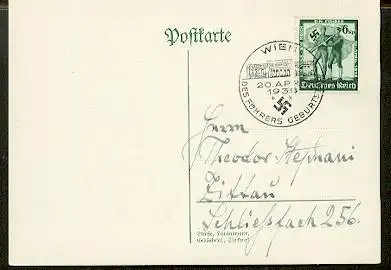 Postkarte
WIEN
20. APR.
1938
DES FÜHRERS GEBURTSTAG
6
Deutsches Reich
Herrn
Theodor Stephani
Zittau
Schließfach 256.
Straße, Hausnummer,